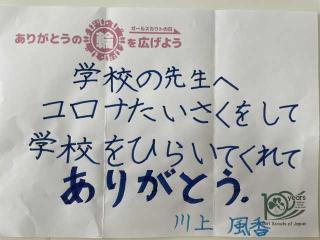 ガールスカウトの日
ありがとうの輪を広げよう
学校の先生へ
コロナたいさくをして
学校をひらいてくれて
ありがとう.
川上 風香
100 years
Girl Scouts of Japan